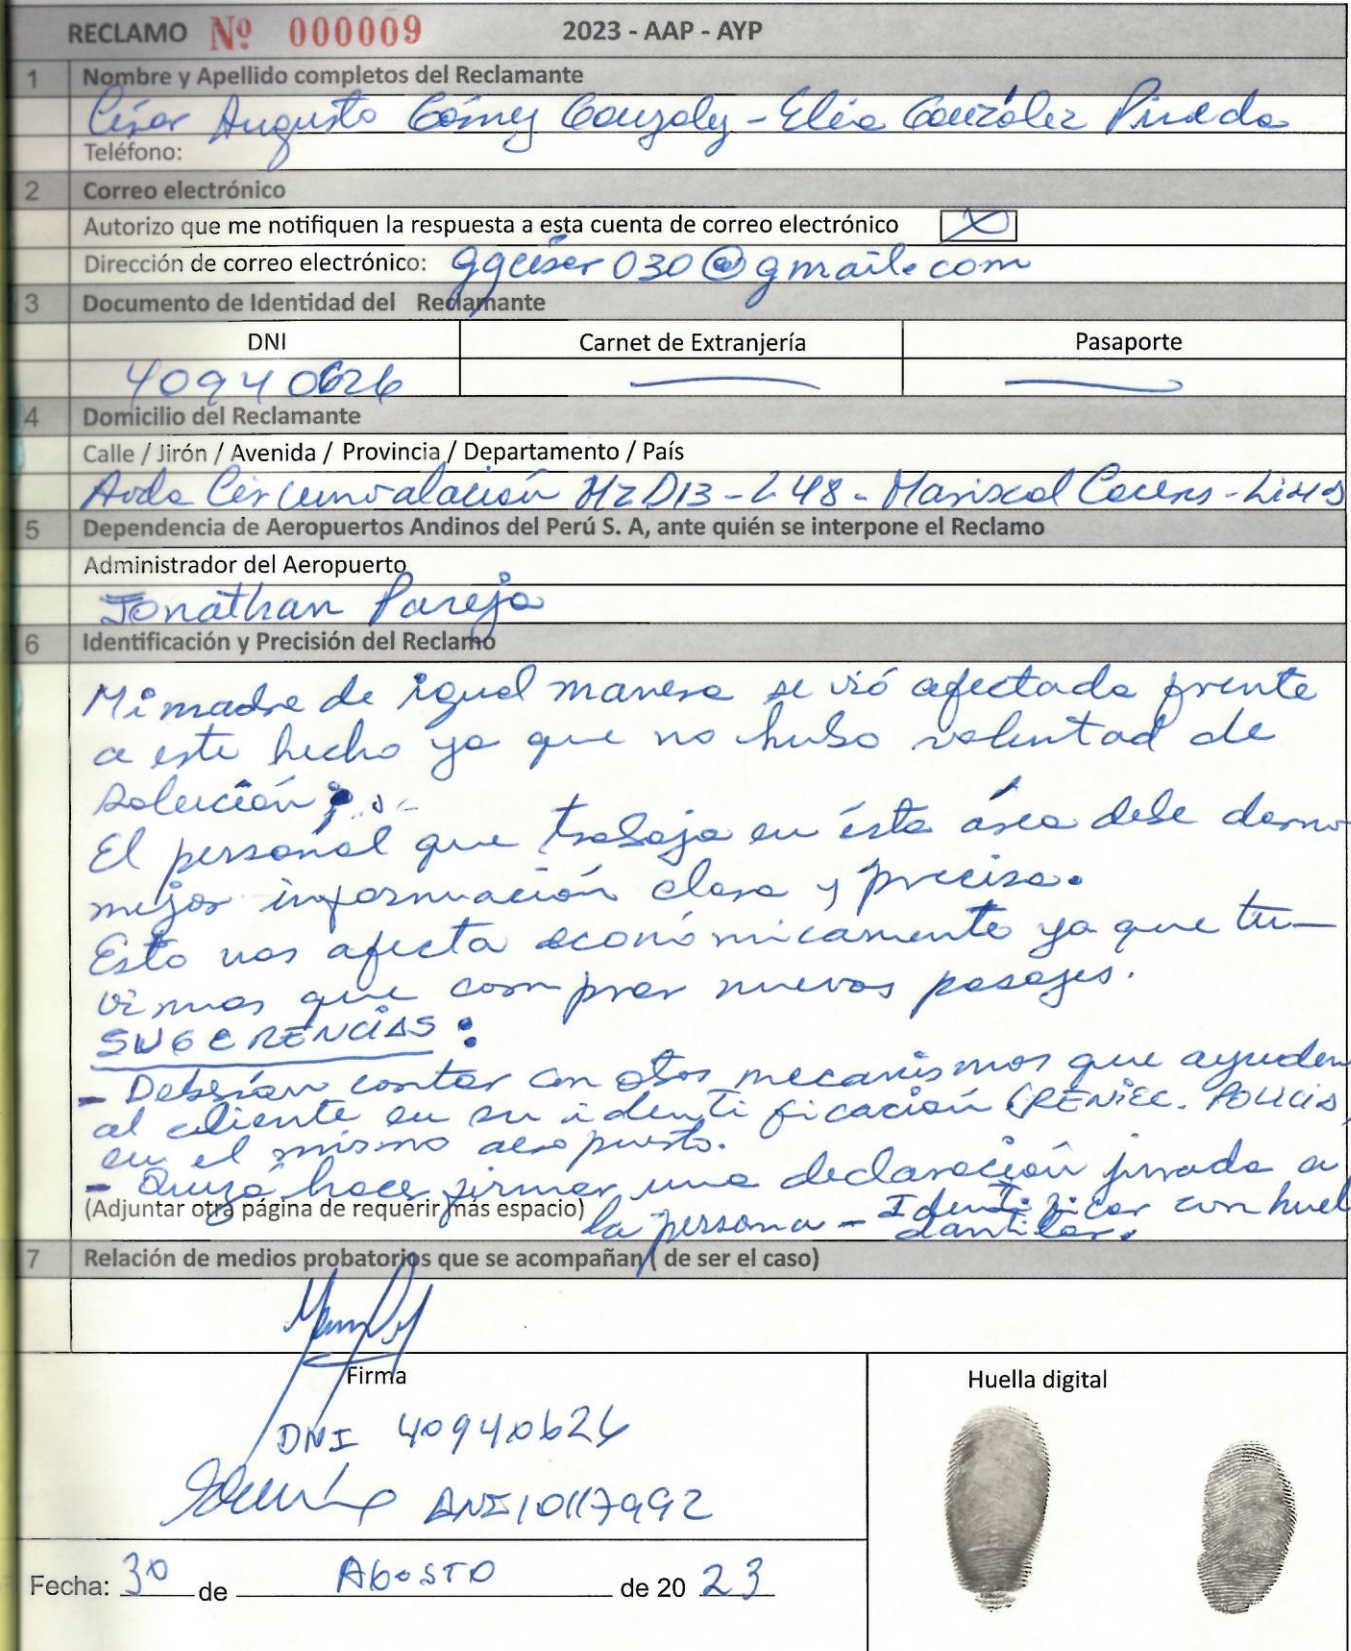 RECLAMO Nº 000009 2023 - AAP - AYP
1 Nombre y Apellido completos del Reclamante
César Augusto Gómez Gonzaley - Elia González Pineda
Teléfono:
2 Correo electrónico
Autorizo que me notifiquen la respuesta a esta cuenta de correo electrónico X
Dirección de correo electrónico: ggcésar030@gmail.com
3 Documento de Identidad del Reclamante
DNI Carnet de Extranjería Pasaporte
40940626
4 Domicilio del Reclamante
Calle / Jirón / Avenida / Provincia / Departamento / País
Avda Circunvalación Mz D13 - L 48 - Mariscal Caceres - Lima
5 Dependencia de Aeropuertos Andinos del Perú S. A, ante quién se interpone el Reclamo
Administrador del Aeropuerto
Jonathan Pareja
6 Identificación y Precisión del Reclamo
Mi madre de igual manera se vió afectada frente
a este hecho ya que no hubo voluntad de
solución
El personal que trabaja en ésta área debe darno
mejor información clara y precisa.
Esto nos afecta económicamente ya que tu-
vimos que comprar nuevos pasajes.
SUGERENCIAS:
- Deberían contar con otros mecanismos que ayuden
al cliente en su identificación (RENIEC. POLICIA)
en el mismo aeropuerto.
- Quizá hacer firmar una declaración jurada a
(Adjuntar otra página de requerir más espacio) la persona - Identificar con huel
dactilar.
7 Relación de medios probatorios que se acompañan ( de ser el caso)
Firma Huella digital
DNI 40940626
DNI 10117992
Fecha: 30 de AGOSTO de 20 23